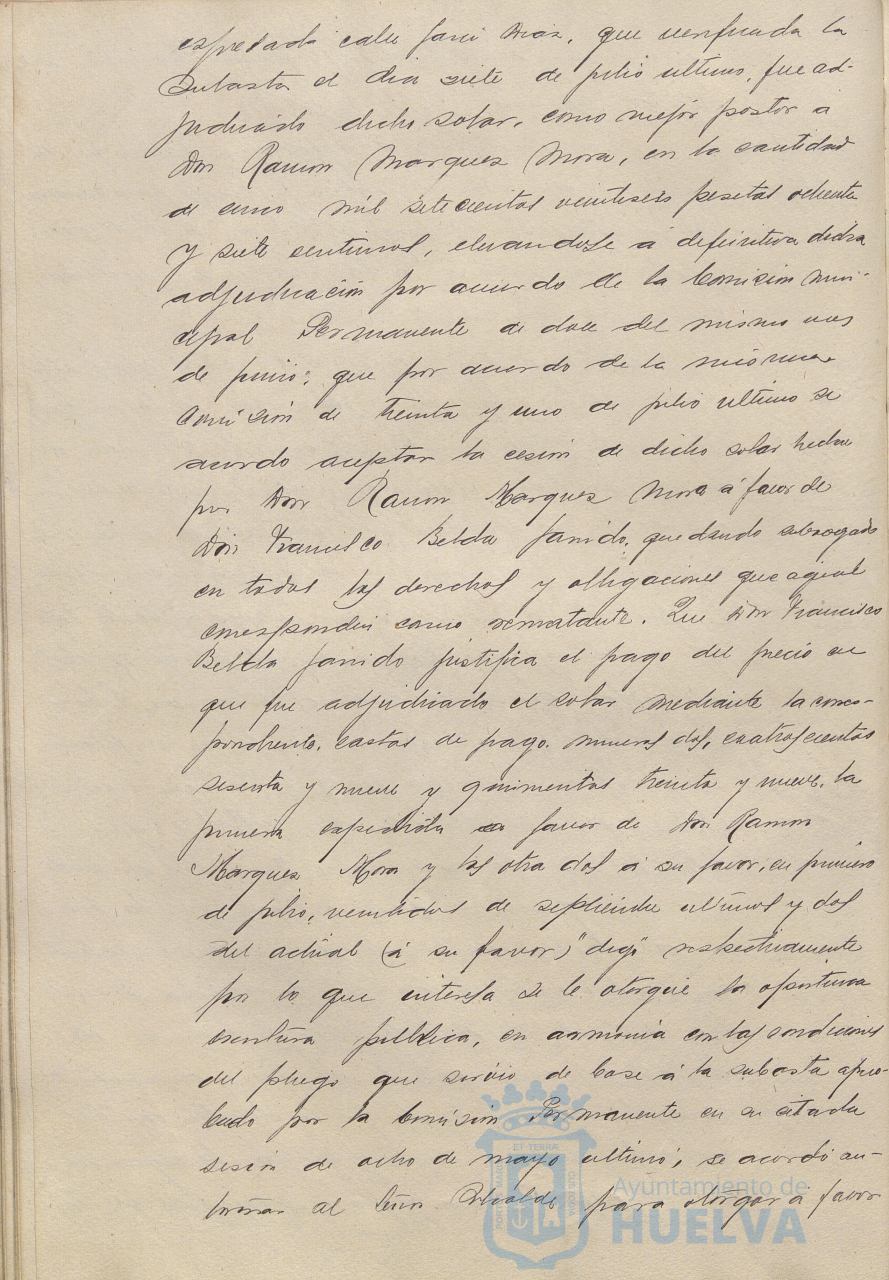 espresada calle Jarci Dias, que verificada la
Subasta el dia siete de julio ultimo, fue ad-
judicado dicho solar, como mejor postor a
Don Ramon Marquez Mora, en la cantidad
de cinco mil setecientas veintiseis pesetas ochenta
y siete centimos, elevandose á definitiva dicha
adjudicación por acuerdo de la Comision Muni-
cipal Permanente de doce del mismo mes
de junio; que por acuerdo de la misma
Comisión de treinta y uno de julio ultimo se
acordo aceptar la cesión de dicho solar hecha
por Don Ramon Marquez Mora á favor de
Don Francisco Belda Jarrido, quedando subrogado
en todos los derechos y obligaciones que aquel
corresponden como rematante. Que Don Francisco
Belda Jarrido justifica el pago del precio en
que fue adjudicado el solar mediante la corres-
pondiente, cartas de pago, numeros dos, cuatrocientos
sesenta y nueve y quinientos treinta y nueve, la
primera expedida a favor de Don Ramon
Marquez Mora y las otra dos á su favor, en primero
de julio, veintidos de septiembre ultimos y dos
del actual (á su favor) "digo" respectivamente
por lo que interesa se le otorgue la oportuna
escritura publica, en armonia con las condiciones
del pliego que sirvio de base á la subasta apro-
bado por la Comision Permanente en su citada
sesión de ocho de mayo ultimo, se acordó au-
torizar al Señor Alcalde para otorgar á favor
Ayuntamiento de
HUELVA